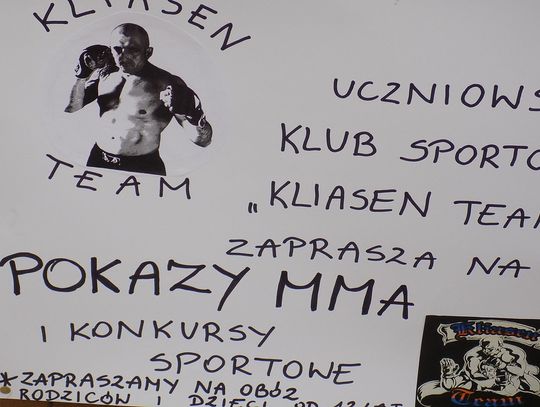 KLIASEN
TEAM
UCZNIOWS
KLUB SPORTO
„KLIASEN TEAM
ZAPRASZA NA
POKAZY MMA
I KONKURSY
SPORTOWE
* ZAPRASZAMY NA OBÓZ
RODZICÓW I DZIECI OD 12 LAT
Kliasen
Team